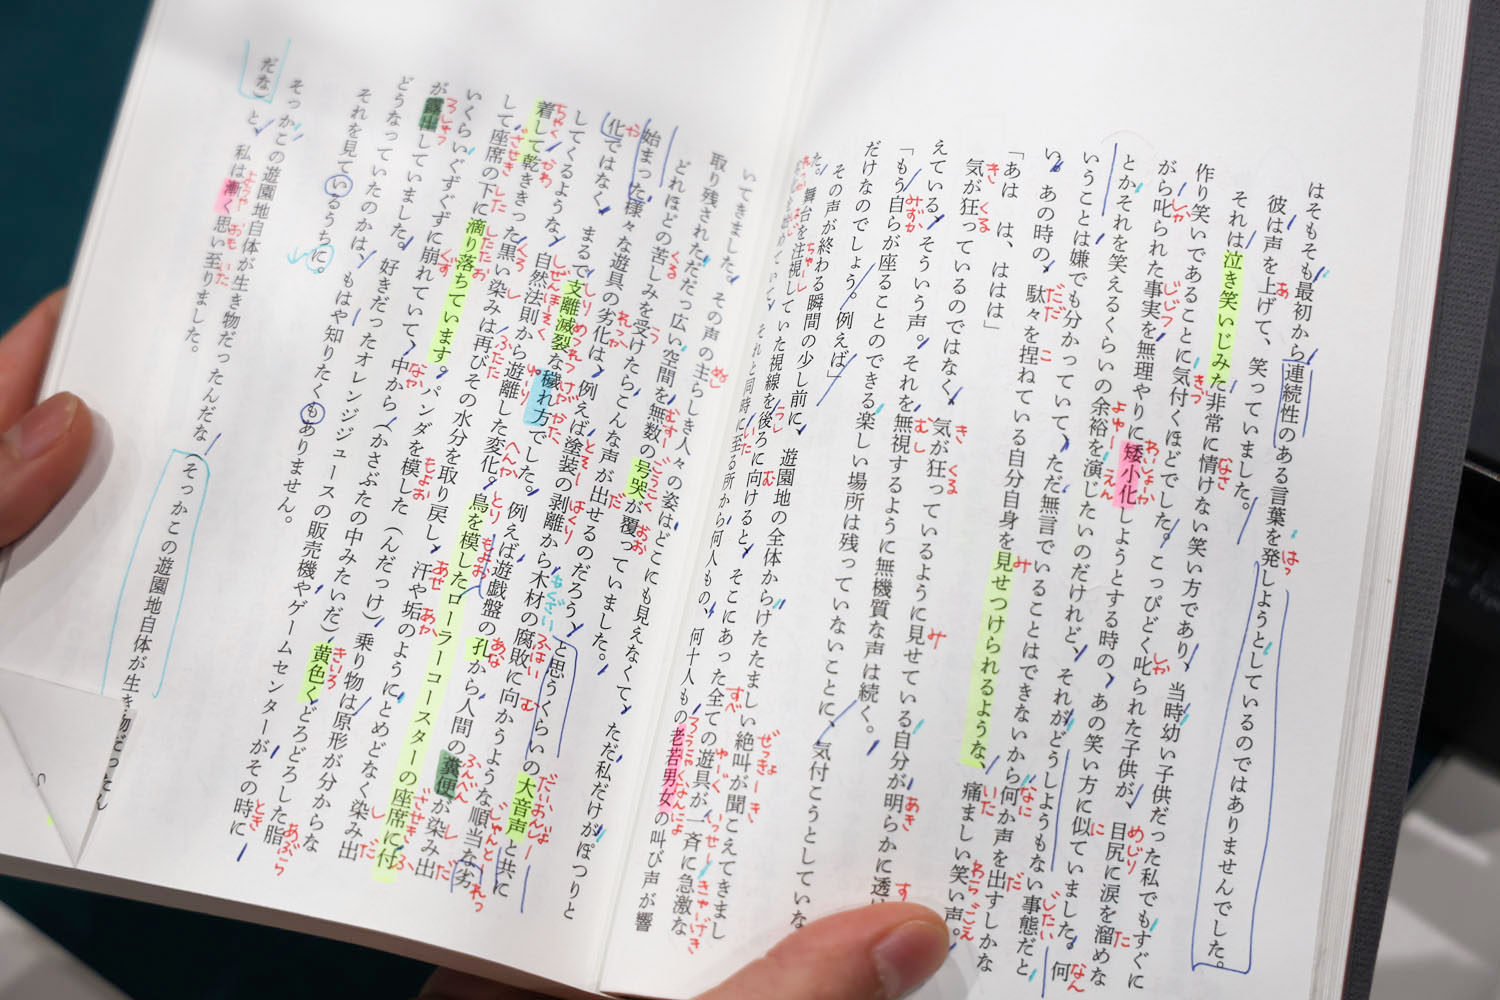 はそもそも最初から連続性のある言葉を発しようとしているのではありませんでした。
彼は声を上げて、笑っていました。
それは泣き笑いじみた非常に情けない笑い方であり、当時幼い子供だった私でもすぐに
作り笑いであることに気付くほどでした。こっぴどく叱られた子供が、目尻に涙を溜めな
がら叱られた事実を無理やりに矮小化しようとする時の、あの笑い方に似ていました。何
とかそれを笑えるくらいの余裕を演じたいのだけれど、それがどうしようもない事態だと
いうことは嫌でも分かっていて、ただ無言でいることはできないから何か声を出すしかな
い。あの時の、駄々を捏ねている自分自身を見せつけられるような、痛ましい笑い声。
「あは　は、ははは」
気が狂っているのではなく、気が狂っているように見せている自分が明らかに透け
えている、そういう声。それを無視するように無機質な声は続く。
「もう自らが座ることのできる楽しい場所は残っていないことに、気付こうとしていな
だけなのでしょう。例えば」
その声が終わる瞬間の少し前に、遊園地の全体からけたたましい絶叫が聞こえてきまし
た。舞台を注視していた視線を後ろに向けると、そこにあった全ての遊具が一斉に急激な
それと同時に至る所から何人もの、何十人もの老若男女の叫び声が響
いてきました。その声の主らしき人々の姿はどこにも見えなくて、ただ私だけがぽつりと
取り残されただだっ広い空間を無数の号哭が覆っていました。
どれほどの苦しみを受けたらこんな声が出せるのだろう、と思うくらいの大音声と共に
始まった様々な遊具の劣化は、例えば塗装の剥離から木材の腐敗に向かうような順当な劣
化ではなく、まるで支離滅裂な穢れ方でした。例えば遊戯盤の孔から人間の糞便が染み出
してくるような、自然法則から遊離した変化。鳥を模したローラーコースターの座席に付
着して乾ききった黒い染みは再びその水分を取り戻し、汗や垢のようにとめどなく染み出
して座席の下に滴り落ちています。パンダを模した（んだっけ）乗り物は原形が分からな
いくらいぐずぐずに崩れていて、中から（かさぶたの中みたいだ）黄色くどろどろした脂
が露出していました。好きだったオレンジジュースの販売機やゲームセンターがその時に
どうなっていたのかは、もはや知りたくもありません。
それを見ているうちに。
そっかこの遊園地自体が生き物だったんだな（そっかこの遊園地自体が生き物だったん
だな）と、私は漸く思い至りました。